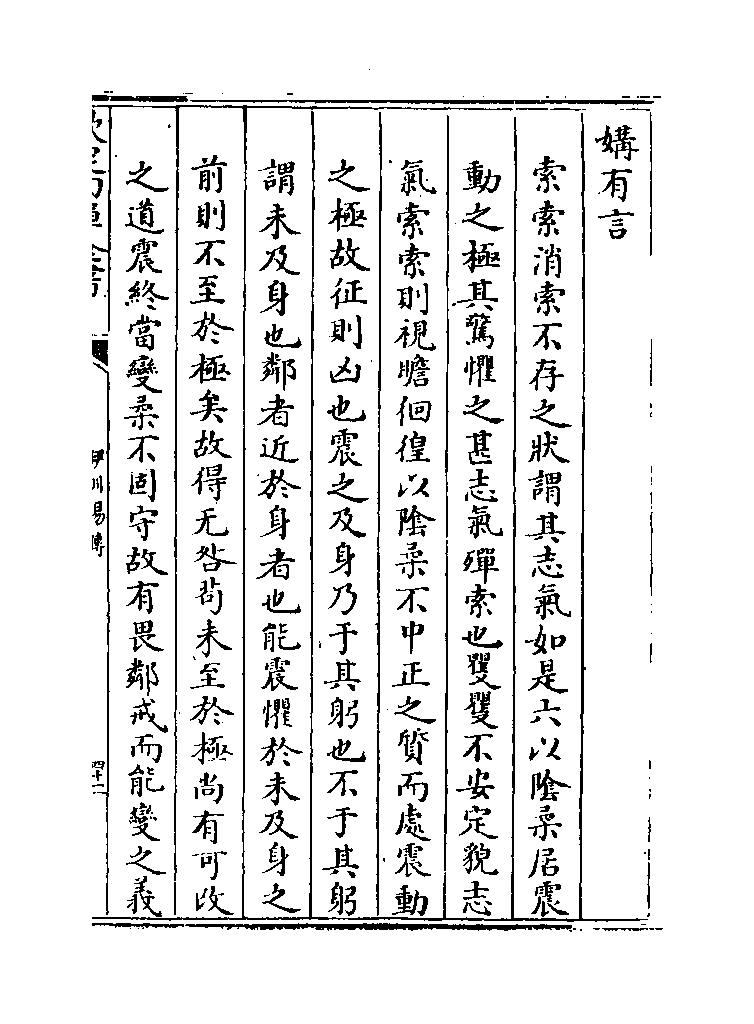 媾有言
索索消索不存之狀謂其志氣如是六以陰柔居震
動之極其驚懼之甚志氣殫索也矍矍不安定貌志
氣索索則視瞻徊徨以陰柔不中正之質而處震動
之極故征則凶也震之及身乃于其躬也不于其躬
謂未及身也鄰者近於身者也能震懼於未及身之
前則不至於極矣故得无咎苟未至於極尚有可改
之道震終當變柔不固守故有畏鄰戒而能變之義
欽定四庫全書
伊川易傳
四十二